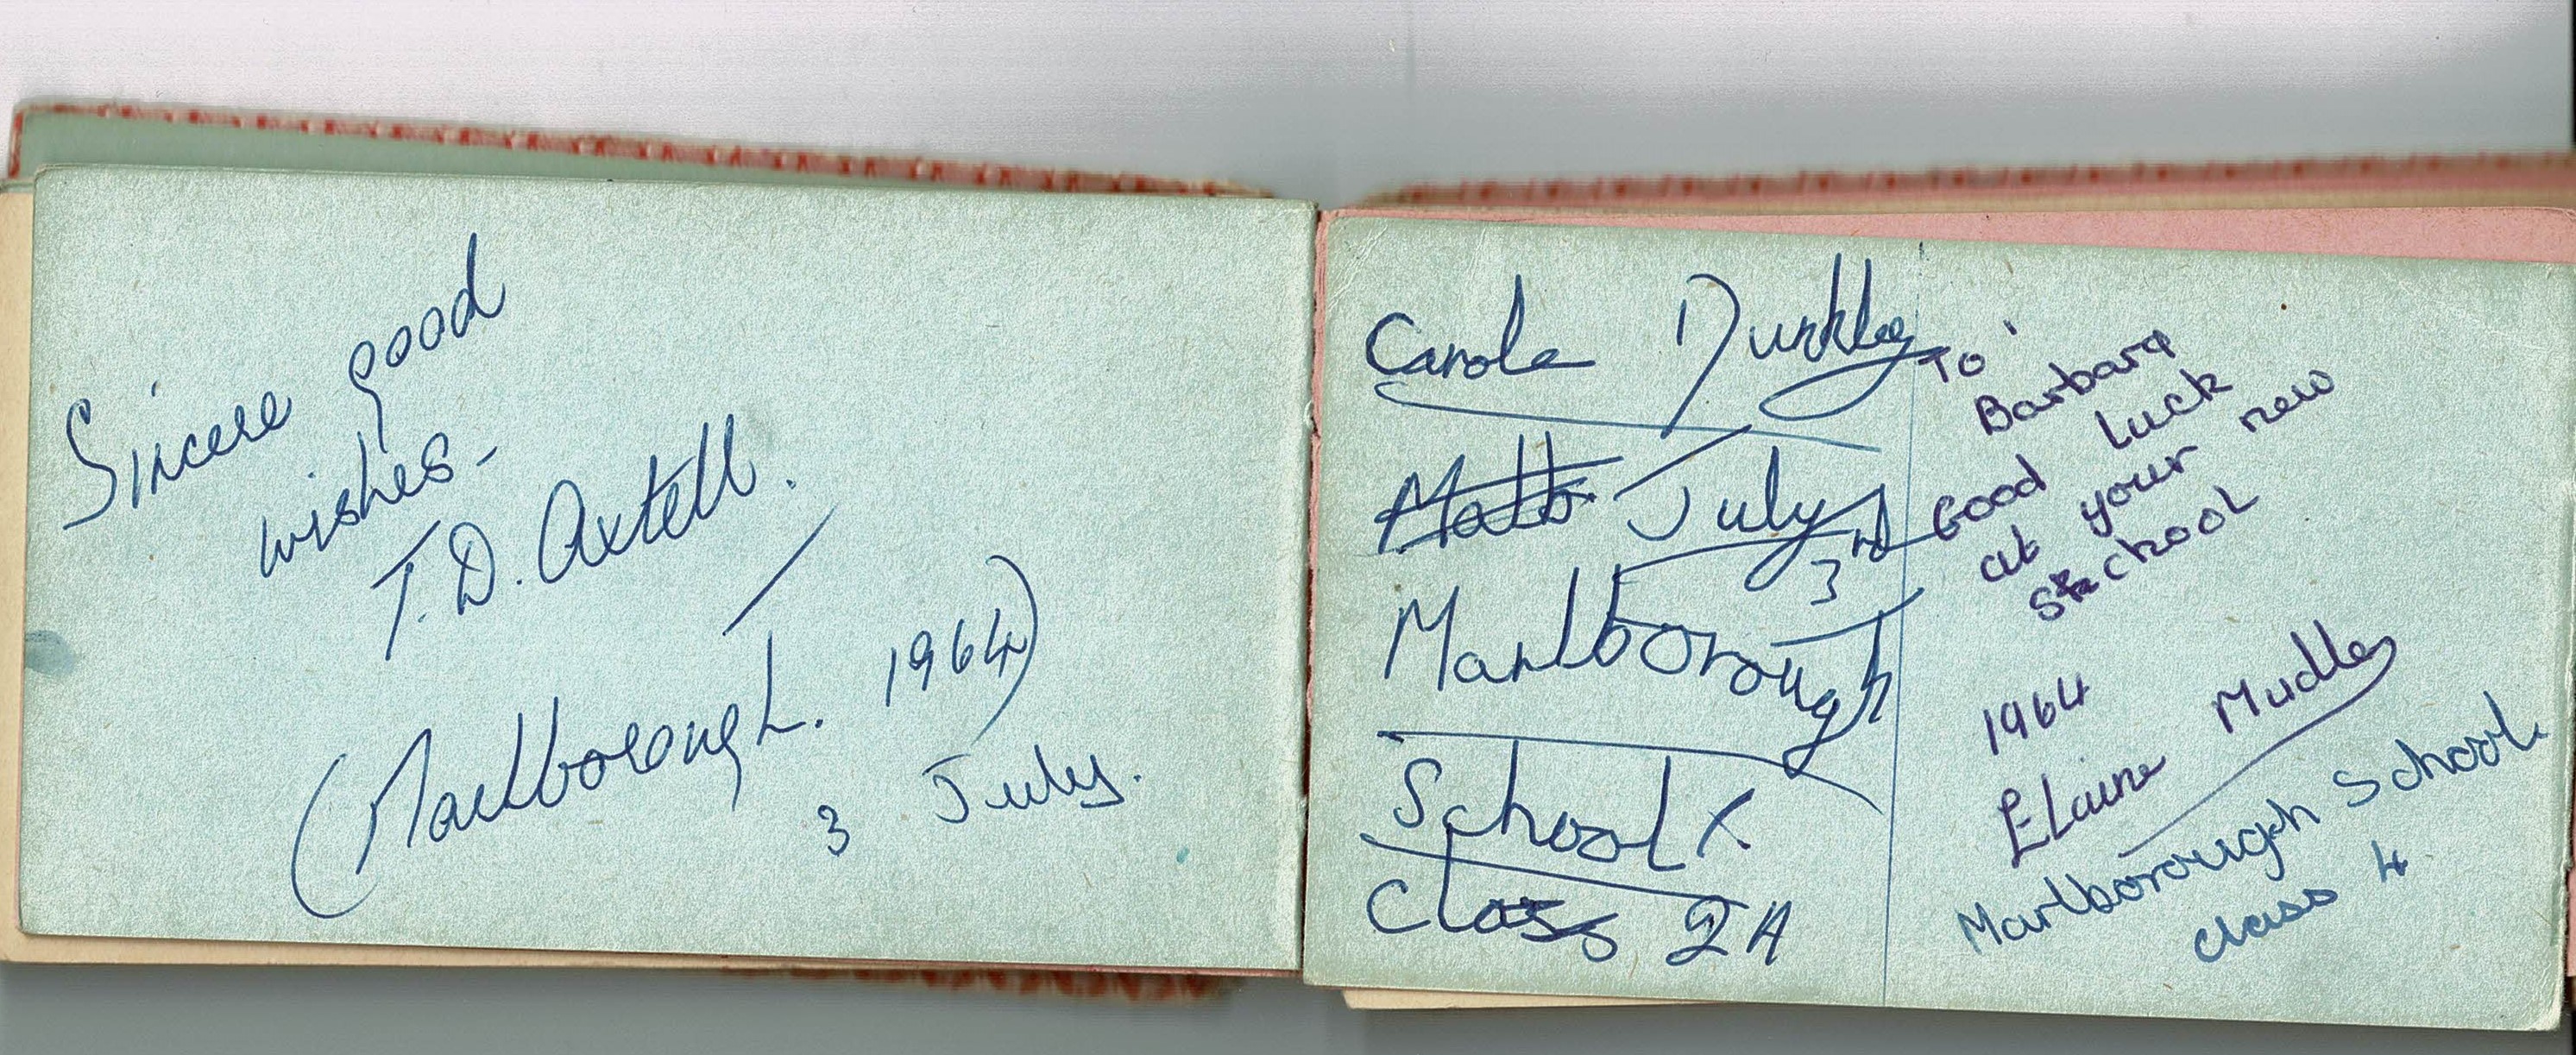 Sincere good
wishes-
T. D. Axtell.
(Marlborough. 1964)
3 July.
Carole
July 3rd
Marlborough
School
Class 2A
To
Barbara
Good Luck
at your new
School
1964
Elaine
Marlborough School
class 4